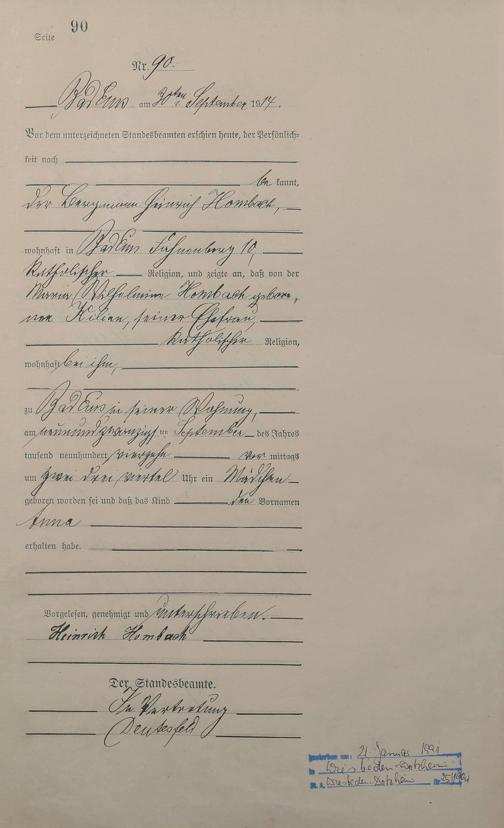 Seite 90
Nr. 90.
Bad Ems am 30ten September 1914.
Vor dem unterzeichneten Standesbeamten erschien heute, der Persönlich=
keit nach
be kannt,
der Bergmann Heinrich Hombach,
wohnhaft in Bad Ems 10,
katholischer Religion, und zeigte an, daß von der
Maria Wilhelmine Hombach gebore=
nen Kilian, seiner Ehefrau,
katholischer Religion,
wohnhaft bei ihm,
zu Bad Ems in seiner Wohnung,
am neunundzwanzig ten September des Jahres
tausend neunhundert vierzehn vor mittags
um zwei drei viertel Uhr ein Mädchen
geboren worden sei und daß das Kind den Vornamen
Anna
erhalten habe.
Vorgelesen, genehmigt und unterschrieben.
Heinrich Hombach
Der Standesbeamte.
In Vertretung
Gestorben am: 21 Januar 1991
in
St. A. Nr.